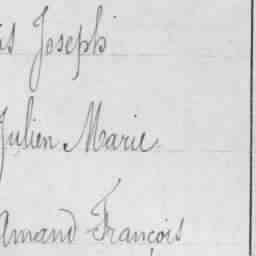 Joseph
Julien Marie
Amand François